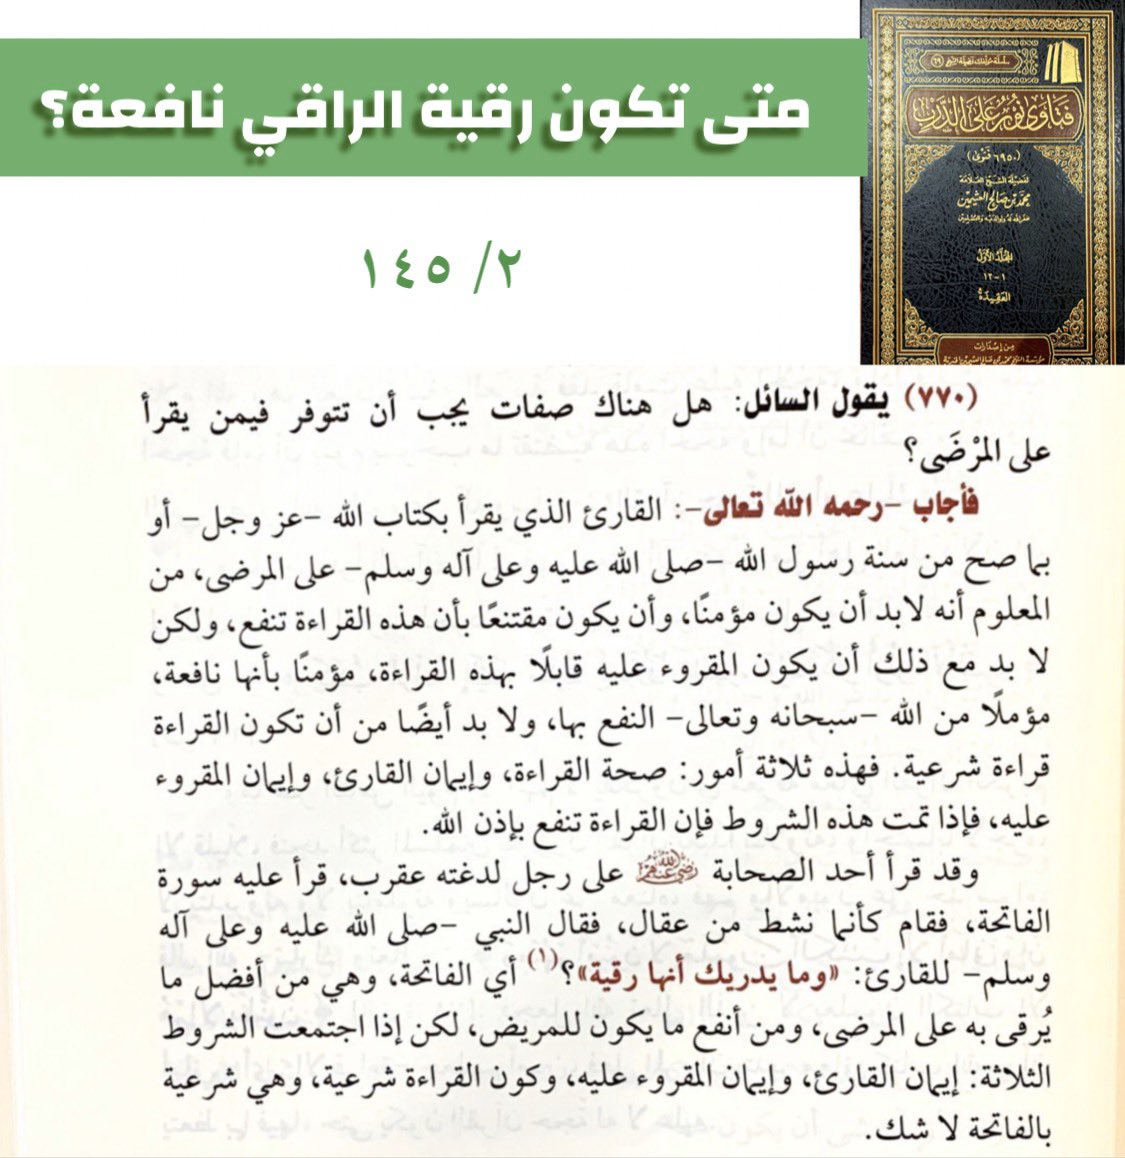 متى تكون رقية الراقي نافعة؟
٢/ ١٤٥
سلسلة مؤلفات فضيلة الشيخ (٦٩)
فتاوى نور على الدرب
(٦٩٥٠ فتوى)
لفضيلة الشيخ العلامة
محمد بن صالح العثيمين
غفر الله له ولوالديه وللمسلمين
المجلد الأول
١-١٢
العقيدة
من إصدارات
مؤسسة الشيخ محمد بن صالح العثيمين الخيرية
(٧٧٠) يقول السائل: هل هناك صفات يجب أن تتوفر فيمن يقرأ
على المرْضَى؟
فأجاب -رحمه الله تعالى-: القارئ الذي يقرأ بكتاب الله -عز وجل- أو
بما صح من سنة رسول الله -صلى الله عليه وعلى آله وسلم- على المرضى، من
المعلوم أنه لابد أن يكون مؤمنًا، وأن يكون مقتنعًا بأن هذه القراءة تنفع، ولكن
لا بد مع ذلك أن يكون المقروء عليه قابلًا بهذه القراءة، مؤمنًا بأنها نافعة،
مؤملًا من الله -سبحانه وتعالى- النفع بها، ولا بد أيضًا من أن تكون القراءة
قراءة شرعية. فهذه ثلاثة أمور: صحة القراءة، وإيمان القارئ، وإيمان المقروء
عليه، فإذا تمت هذه الشروط فإن القراءة تنفع بإذن الله.
وقد قرأ أحد الصحابة رضي الله عنهم على رجل لدغته عقرب، قرأ عليه سورة
الفاتحة، فقام كأنما نشط من عقال، فقال النبي -صلى الله عليه وعلى آله
وسلم- للقارئ: «وما يدريك أنها رقية»؟(١) أي الفاتحة، وهي من أفضل ما
يُرقى به على المرضى، ومن أنفع ما يكون للمريض، لكن إذا اجتمعت الشروط
الثلاثة: إيمان القارئ، وإيمان المقروء عليه، وكون القراءة شرعية، وهي شرعية
بالفاتحة لا شك.